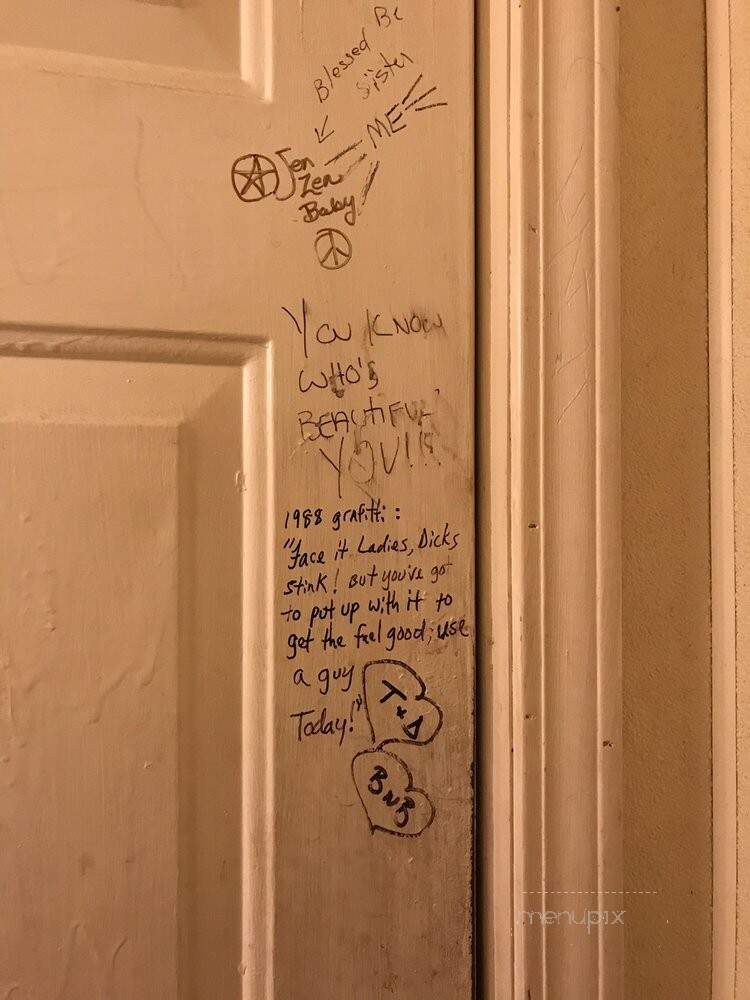 Blessed Be
Sister
ME
Jen
Zen
Baby
YOU KNOW
WHO'S
BEAUTIFUL
YOU!!!
1988 grafitti:
"Face it Ladies, Dicks
stink! But you've got
to put up with it to
get the feel good; use
a guy
Today!"
T x D
B N B
menupix